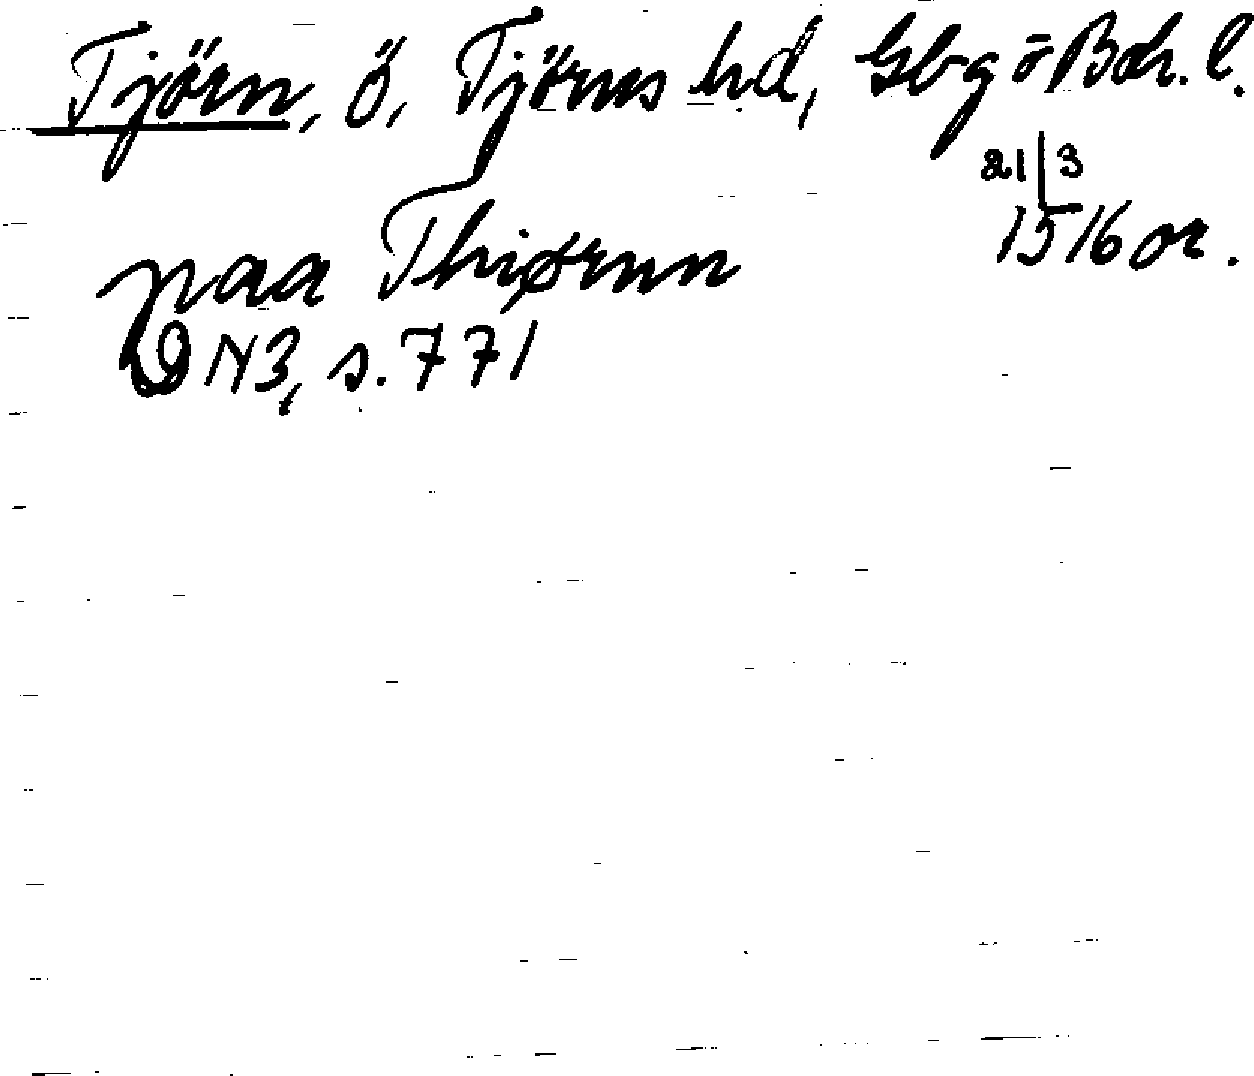 Tjörn, ö, Tjörns hd, Gbg o Boh. l.
21/3
1516 or.
paa Thiørnn
DN3, s. 771